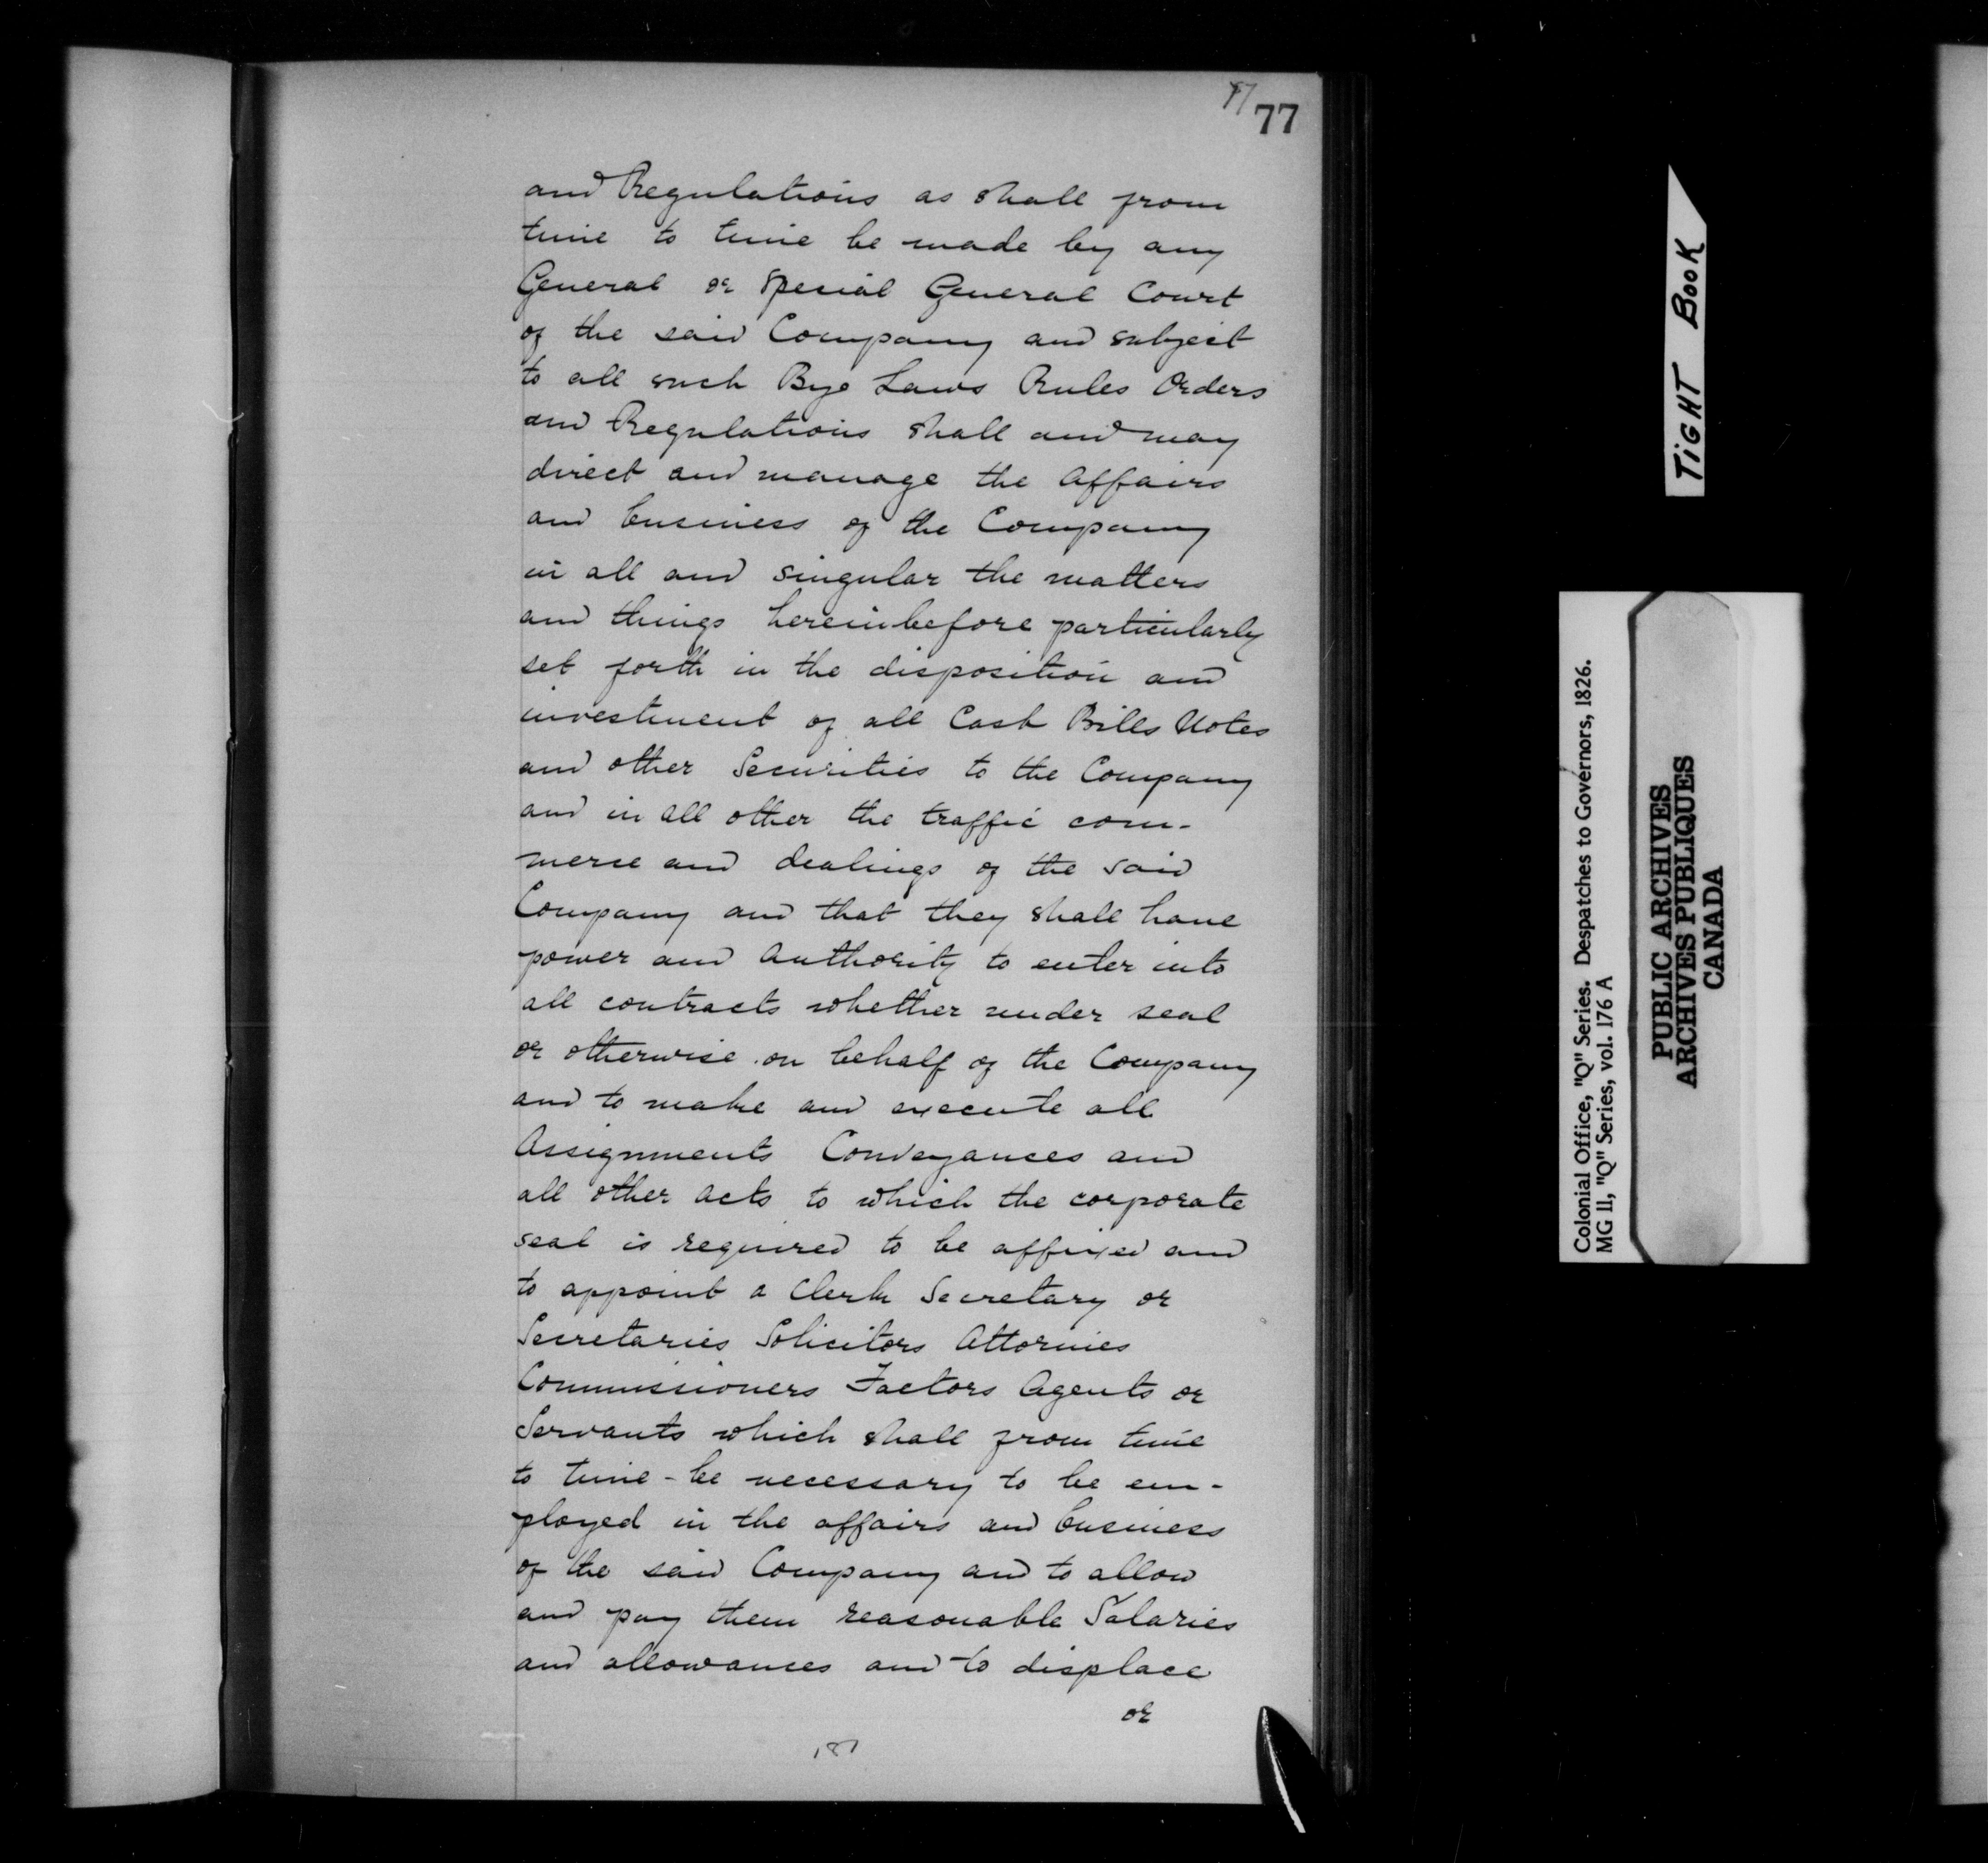 77
and Regulations as shall from
time to time be made by any
General or Special General Court
of the said Company and subject
to all such Bye Laws Rules Orders
and Regulations shall and may
direct and manage the Affairs
and business of the Company
in all and singular the matters
and things hereinbefore particularly
set forth in the disposition and
investment of all Cash Bills Notes
and other Securities to the Company
and in all other the traffic com-
merce and dealings of the said
Company and that they shall have
power and Authority to enter into
all contracts whether under seal
or otherwise on behalf of the Company
and to make and execute all
Assignments Conveyances and
all other Acts to which the corporate
seal is required to be affixed and
to appoint a Clerk Secretary or
Secretaries Solicitors Attornies
Commissioners Factors Agents or
Servants which shall from time
to time - be necessary to be em-
ployed in the affairs and business
of the said Company and to allow
and pay them reasonable Salaries
and allowances and to displace
or
TIGHT BOOK
Colonial Office, "Q" Series. Despatches to Governors, 1826.
MG 11, "Q" Series, vol. 176 A
PUBLIC ARCHIVES
ARCHIVES PUBLIQUES
CANADA